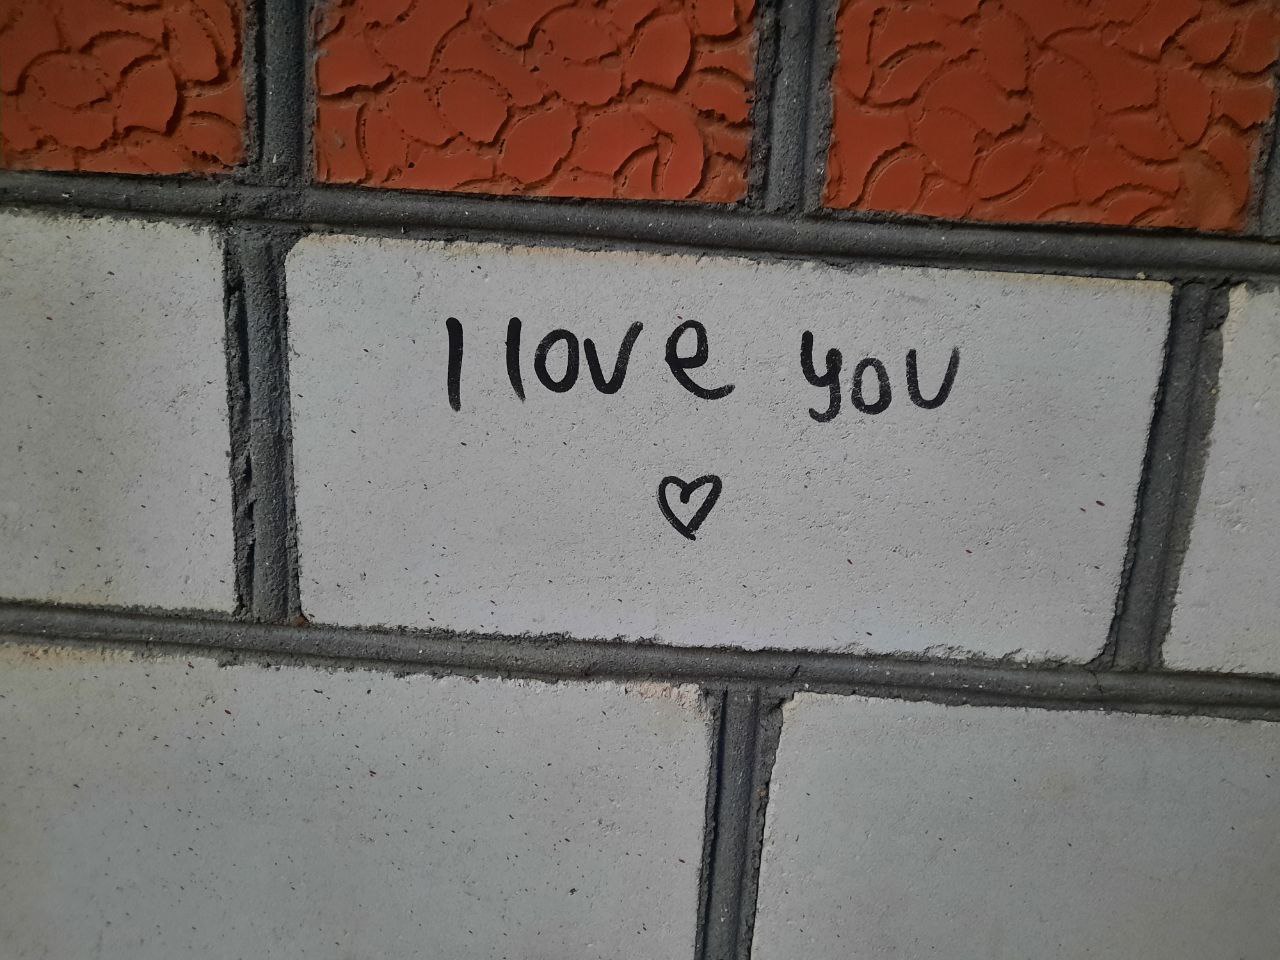 I love you
♡